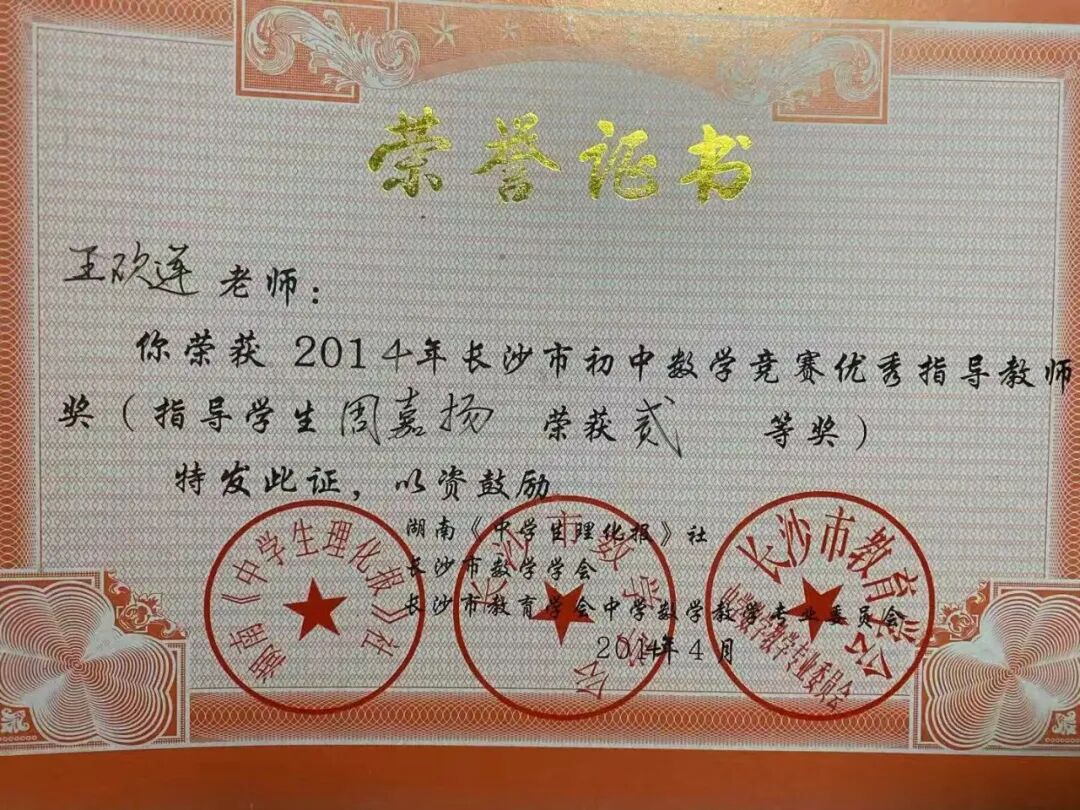 荣誉证书
王欣莲 老师：
你荣获 2014年长沙市初中数学竞赛优秀指导教师
奖（指导学生周嘉扬 荣获贰 等奖）
特发此证，以资鼓励
湖南《中学生理化报》社
长沙市数学学会
长沙市教育学会中学数学教学专业委员会
2014年4月
湖南《中学生理化报》社
长沙市数学学会
长沙市教育学会
中学数学教学专业委员会